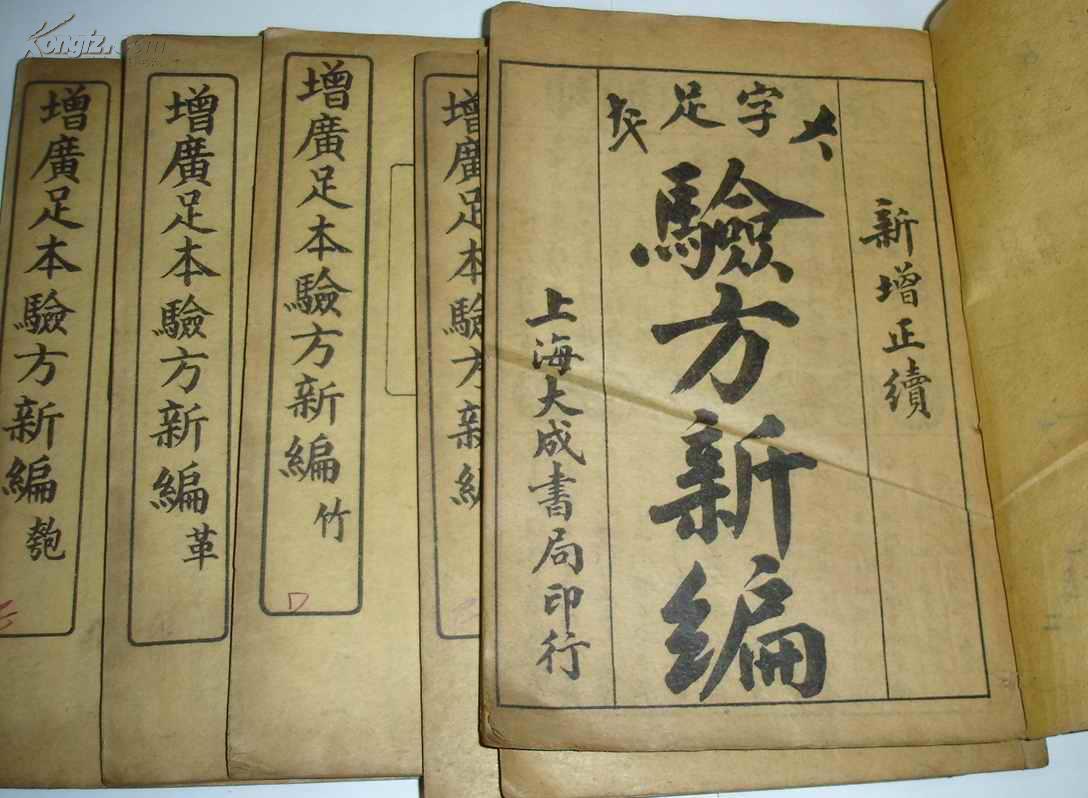 新增正續
大字足本
驗方新編
上海大成書局印行
增廣足本驗方新編
增廣足本驗方新編 竹
增廣足本驗方新編 革
增廣足本驗方新編 匏
Kongfz.com